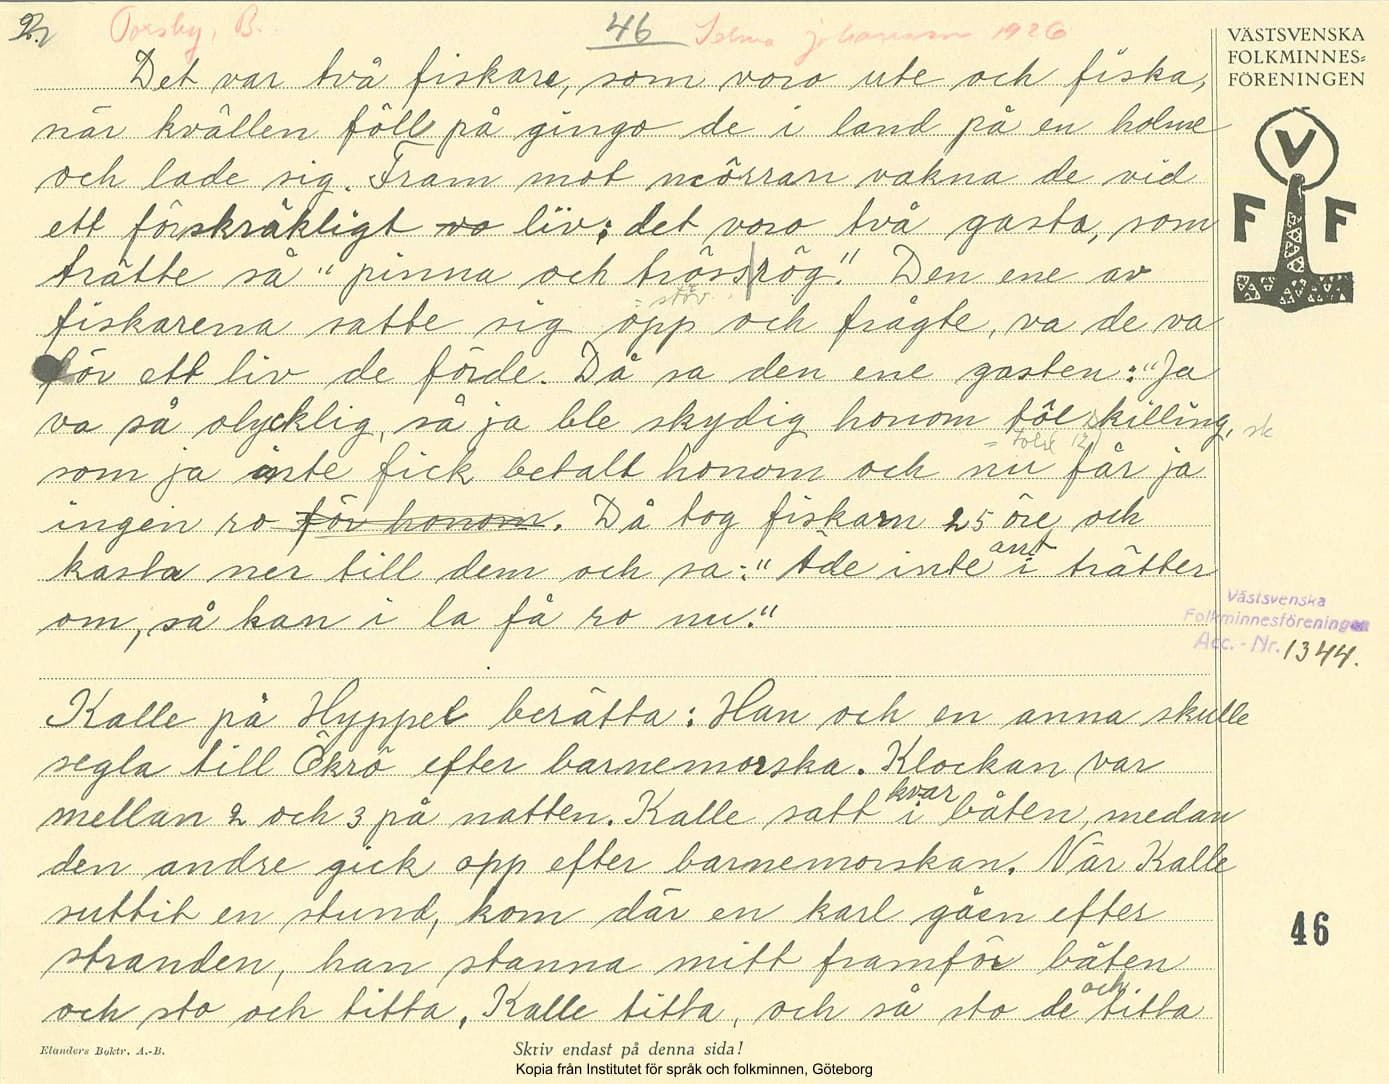 Torsby, B.
46
Selma Johansson 1926
VÄSTSVENSKA
FOLKMINNES=
FÖRENINGEN
V
F F
Det var två fiskare, som voro ute och fiska,
när kvällen föll på gingo de i land på en holme
och lade sig. Fram mot mörran vakna de vid
ett förskräkligt vo liv; det voro två gasta, som
trätte så "pinna och trössrög." Den ene av
= störv.
fiskarena satte sig opp och frågte, va de va
för ett liv de förde. Då sa den ene gasten: "Ja
va så olycklig, så ja ble skydig honom töl skilling, sk
= tolv 12
som ja inte fick betalt honom och nu får ja
ingen ro för honom. Då tog fiskarn 25 öre och
kasta ner till dem och sa: "Ä de inte ant i trätter
om, så kan i la få ro nu."
Västsvenska
Folkminnesföreningen
Acc. - Nr. 1344.
Kalle på Hyppel berätta: Han och en anna skulle
segla till Öckrö efter barnemorska. Klockan var
mellan 2 och 3 på natten. Kalle satt kvar i båten, medan
den andre gick opp efter barnemorskan. När Kalle
suttit en stund, kom där en karl gåen efter
46
stranden, han stanna mitt framför båten
och sto och titta. Kalle titta, och så sto de och titta
Elanders Boktr. A.-B.
Skriv endast på denna sida!
Kopia från Institutet för språk och folkminnen, Göteborg